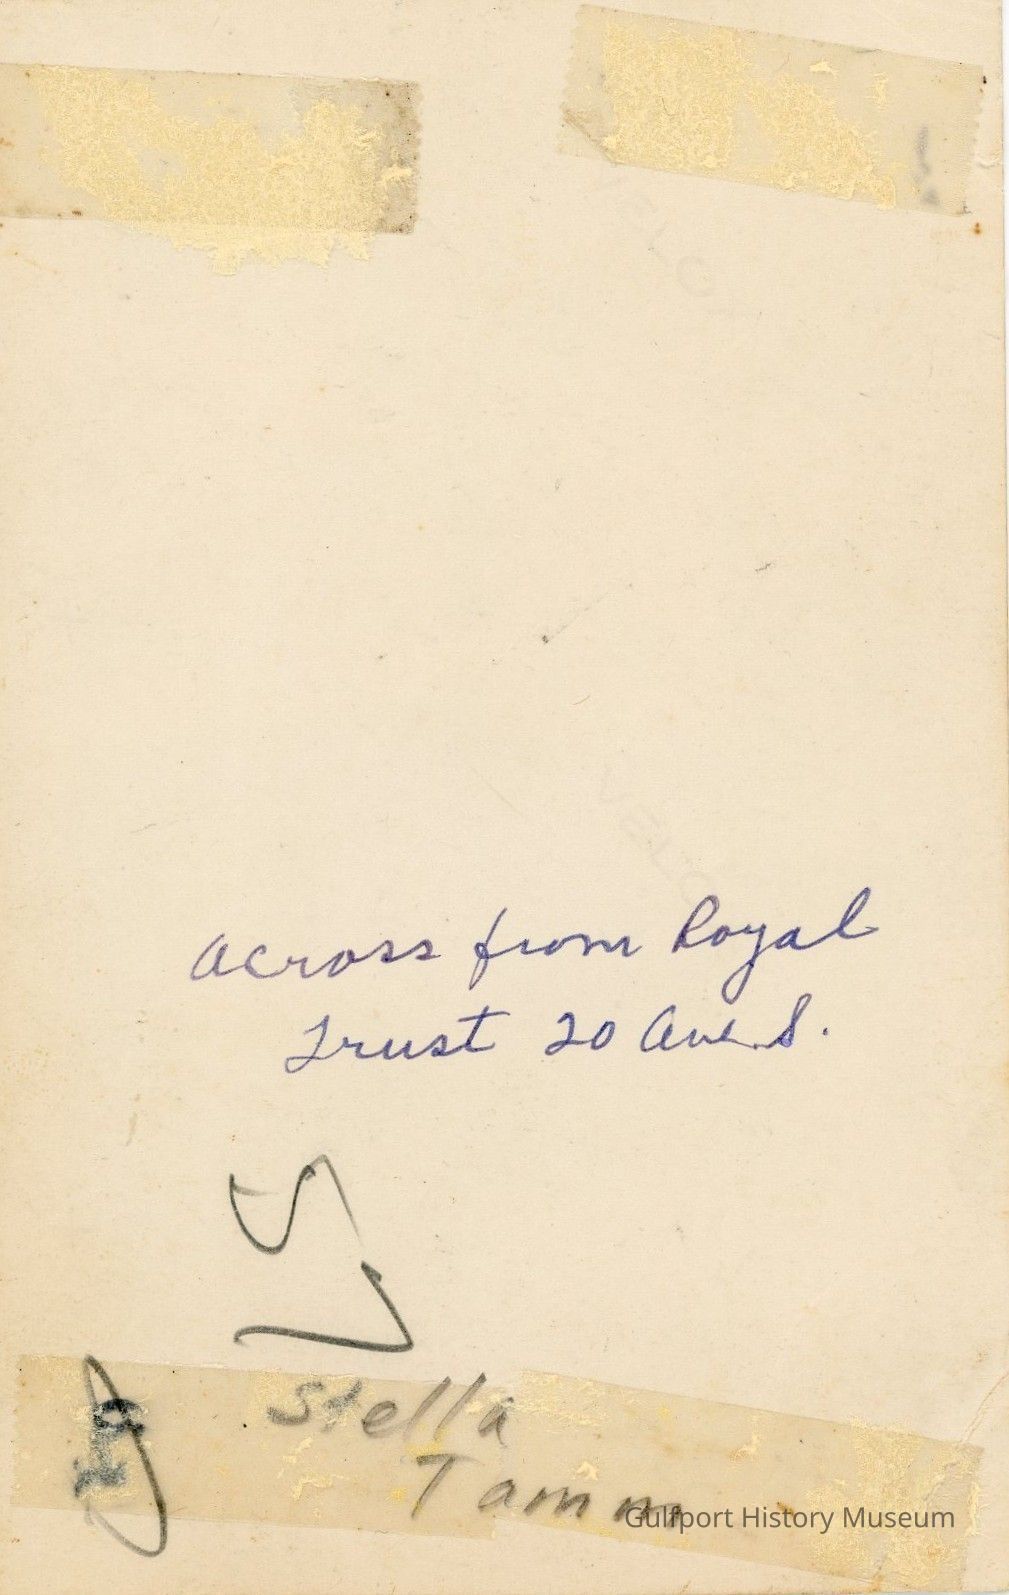 across from Royal
Trust 20 Ave. S.
Stella
Tamm
Gulfport History Museum